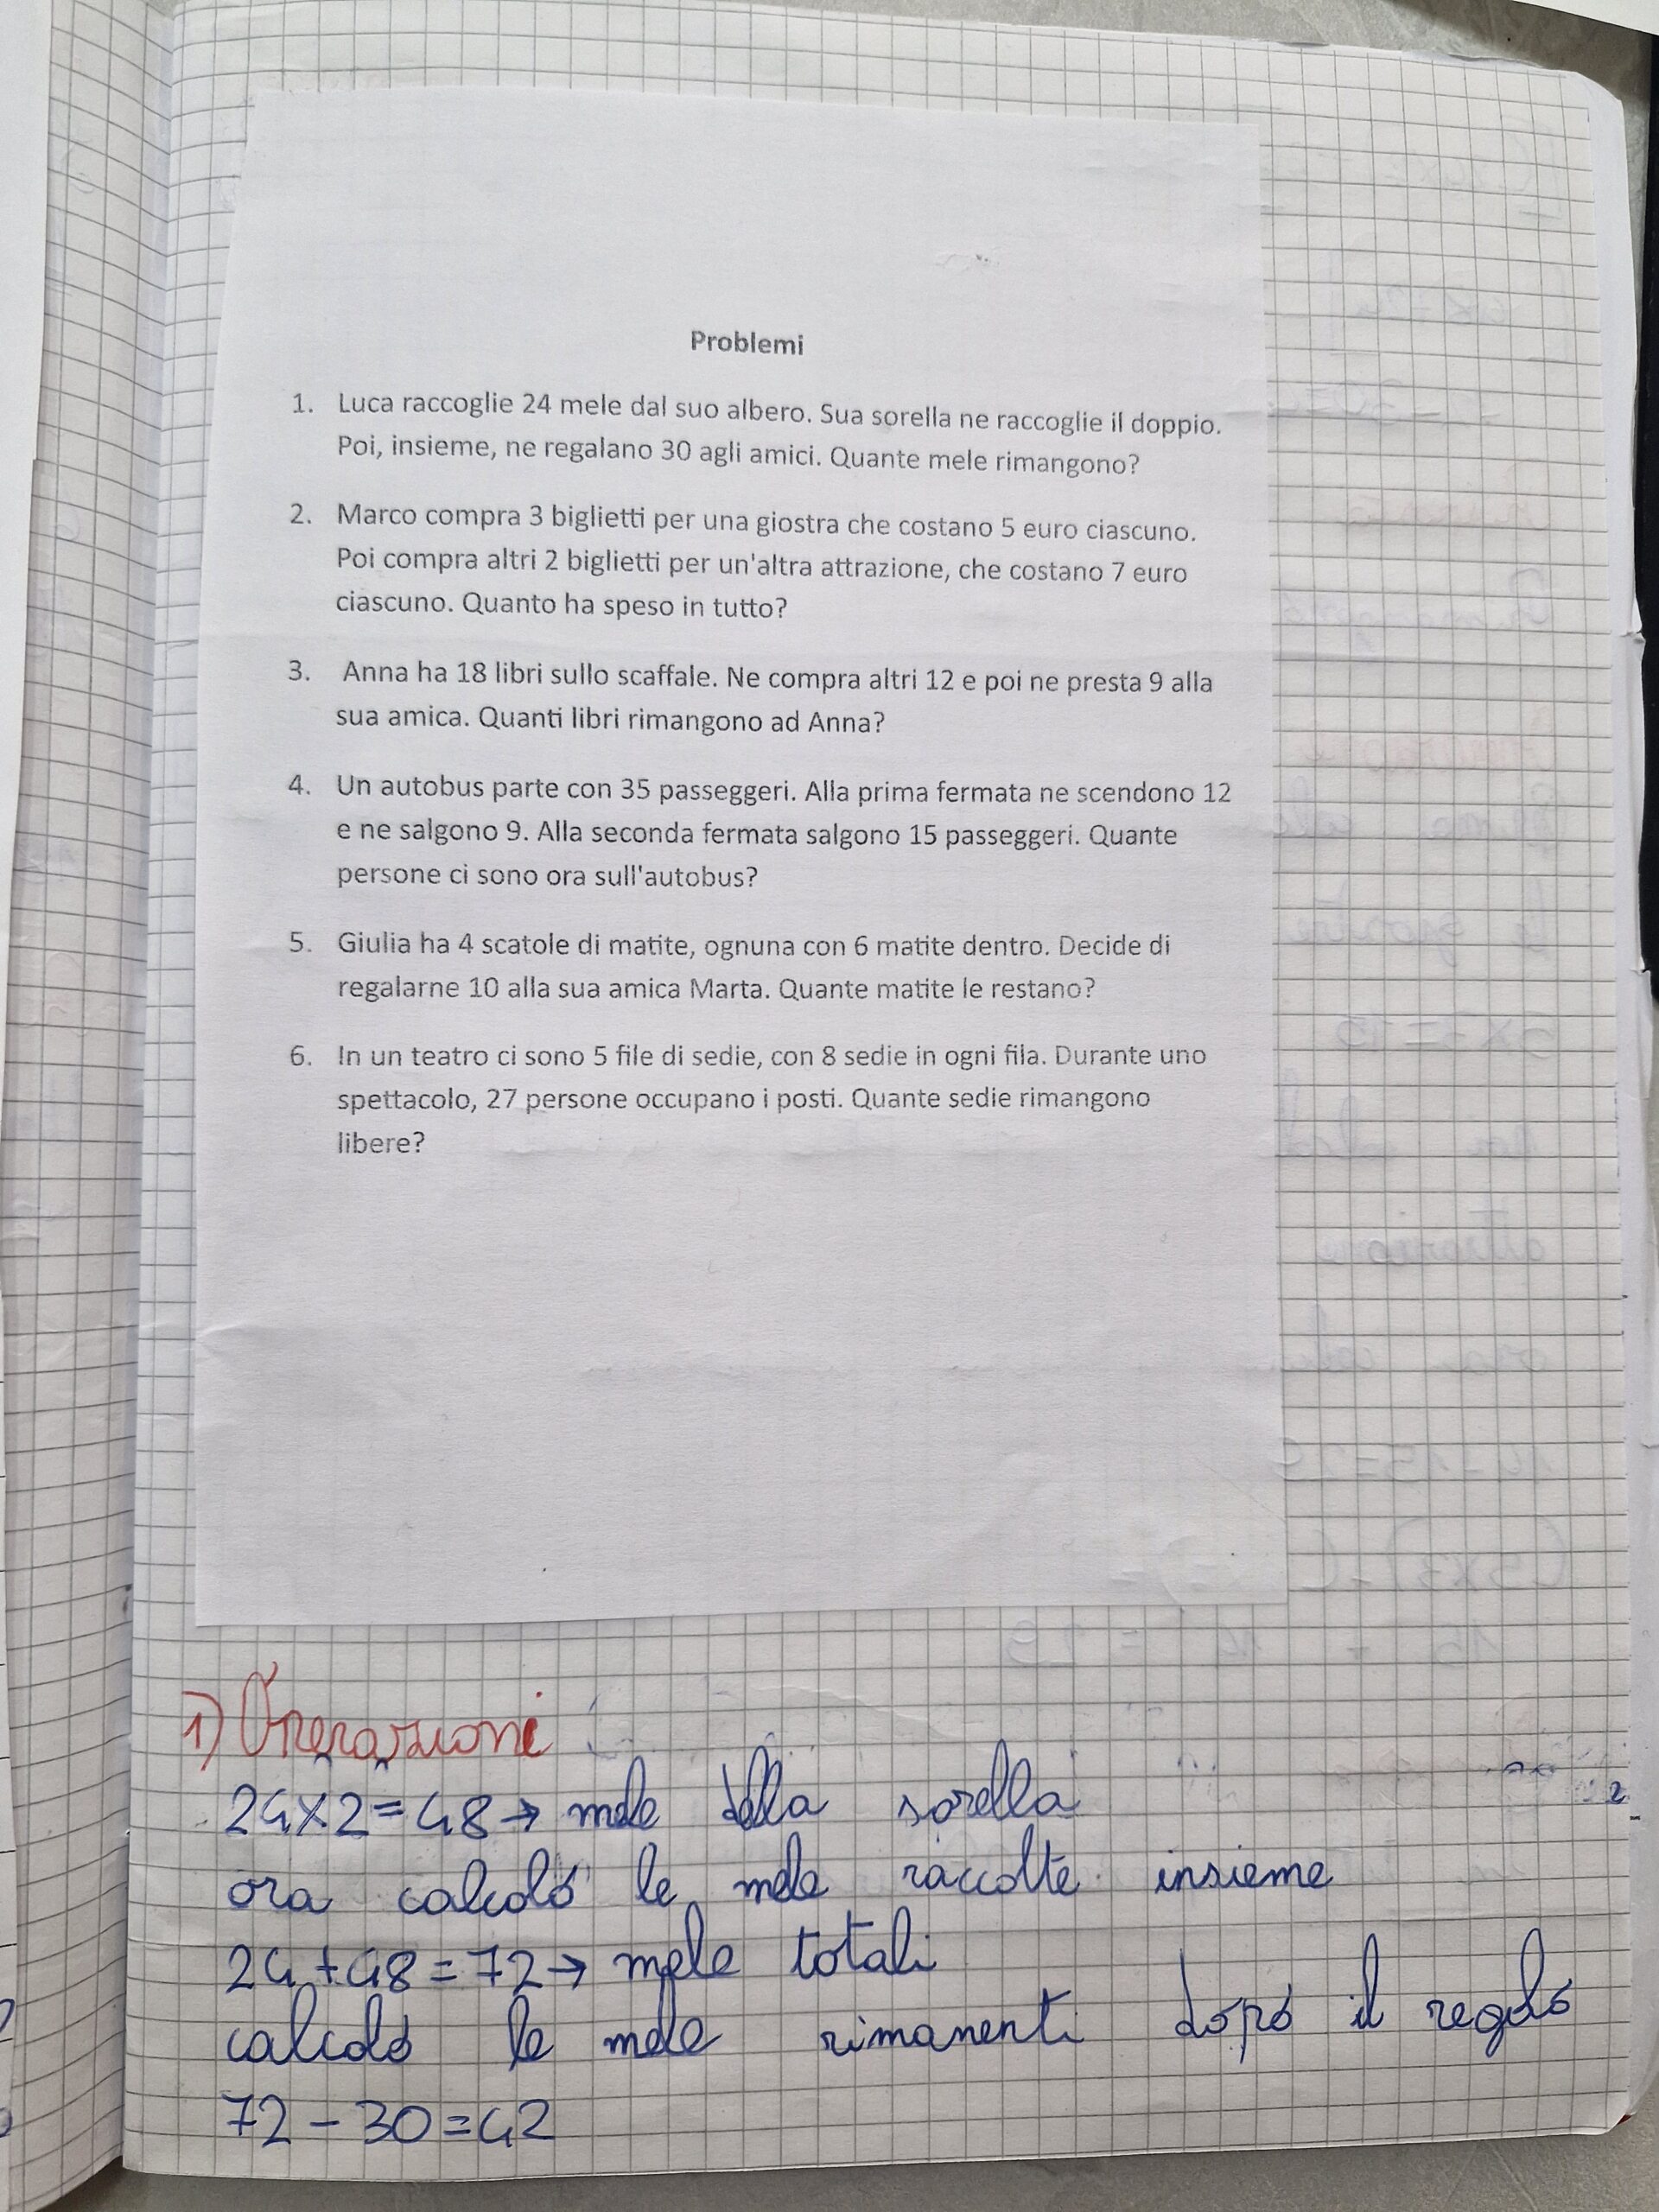 Problemi
1. Luca raccoglie 24 mele dal suo albero. Sua sorella ne raccoglie il doppio.
Poi, insieme, ne regalano 30 agli amici. Quante mele rimangono?
2. Marco compra 3 biglietti per una giostra che costano 5 euro ciascuno.
Poi compra altri 2 biglietti per un'altra attrazione, che costano 7 euro
ciascuno. Quanto ha speso in tutto?
3. Anna ha 18 libri sullo scaffale. Ne compra altri 12 e poi ne presta 9 alla
sua amica. Quanti libri rimangono ad Anna?
4. Un autobus parte con 35 passeggeri. Alla prima fermata ne scendono 12
e ne salgono 9. Alla seconda fermata salgono 15 passeggeri. Quante
persone ci sono ora sull'autobus?
5. Giulia ha 4 scatole di matite, ognuna con 6 matite dentro. Decide di
regalarne 10 alla sua amica Marta. Quante matite le restano?
6. In un teatro ci sono 5 file di sedie, con 8 sedie in ogni fila. Durante uno
spettacolo, 27 persone occupano i posti. Quante sedie rimangono
libere?
1) Operazioni
24x2=48→ mele della sorella
ora calcolo le mele raccolte insieme
24+48=72→ mele totali
calcolo le mele rimanenti dopo il regalo
72-30=42